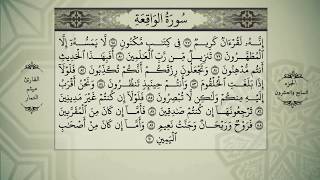 سُورَةُ الوَاقِعَةِ
إِنَّهُۥ لَقُرْءَانٌ كَرِيمٌ ۝ فِى كِتَٰبٍ مَّكْنُونٍ ۝ لَّا يَمَسُّهُۥٓ إِلَّا
ٱلْمُطَهَّرُونَ ۝ تَنزِيلٌ مِّن رَّبِّ ٱلْعَٰلَمِينَ ۝ أَفَبِهَٰذَا ٱلْحَدِيثِ
أَنتُم مُّدْهِنُونَ ۝ وَتَجْعَلُونَ رِزْقَكُمْ أَنَّكُمْ تُكَذِّبُونَ ۝ فَلَوْلَآ
إِذَا بَلَغَتِ ٱلْحُلْقُومَ ۝ وَأَنتُمْ حِينَئِذٍ تَنظُرُونَ ۝ وَنَحْنُ أَقْرَبُ
إِلَيْهِ مِنكُمْ وَلَٰكِن لَّا تُبْصِرُونَ ۝ فَلَوْلَآ إِن كُنتُمْ غَيْرَ مَدِينِينَ
۝ تَرْجِعُونَهَآ إِن كُنتُمْ صَٰدِقِينَ ۝ فَأَمَّآ إِن كَانَ مِنَ ٱلْمُقَرَّبِينَ
۝ فَرَوْحٌ وَرَيْحَانٌ وَجَنَّتُ نَعِيمٍ ۝ وَأَمَّآ إِن كَانَ مِنْ أَصْحَٰبِ
ٱلْيَمِينِ ۝
الجزء
السابع والعشرون
القارئ
ميثم
التمار